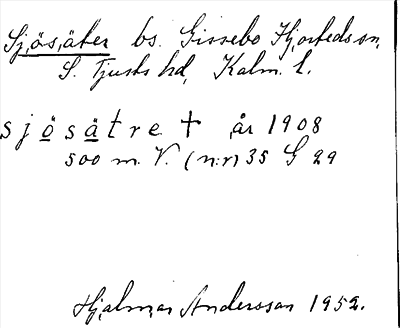 Sjösäter bs. Gissebo Hjorteds sn,
S. Tjusts hd, Kalm. l.
sjösätre + år 1908
500 m. V. (n:r) 35 G 29
Hjalmar Andersson 1952.